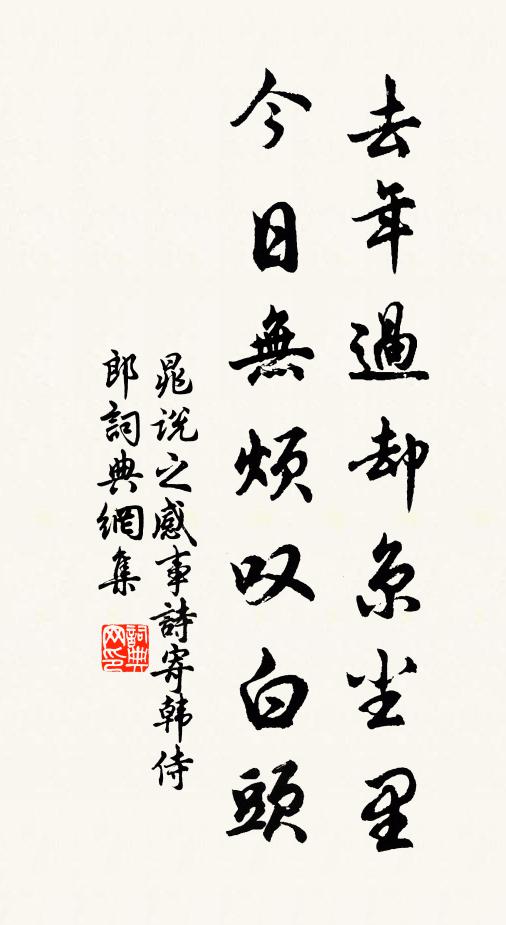 去年過却京尘里
今日無煩叹白頭
晁说之感事詩寄韩侍
郎詞典網集
詞典
网印